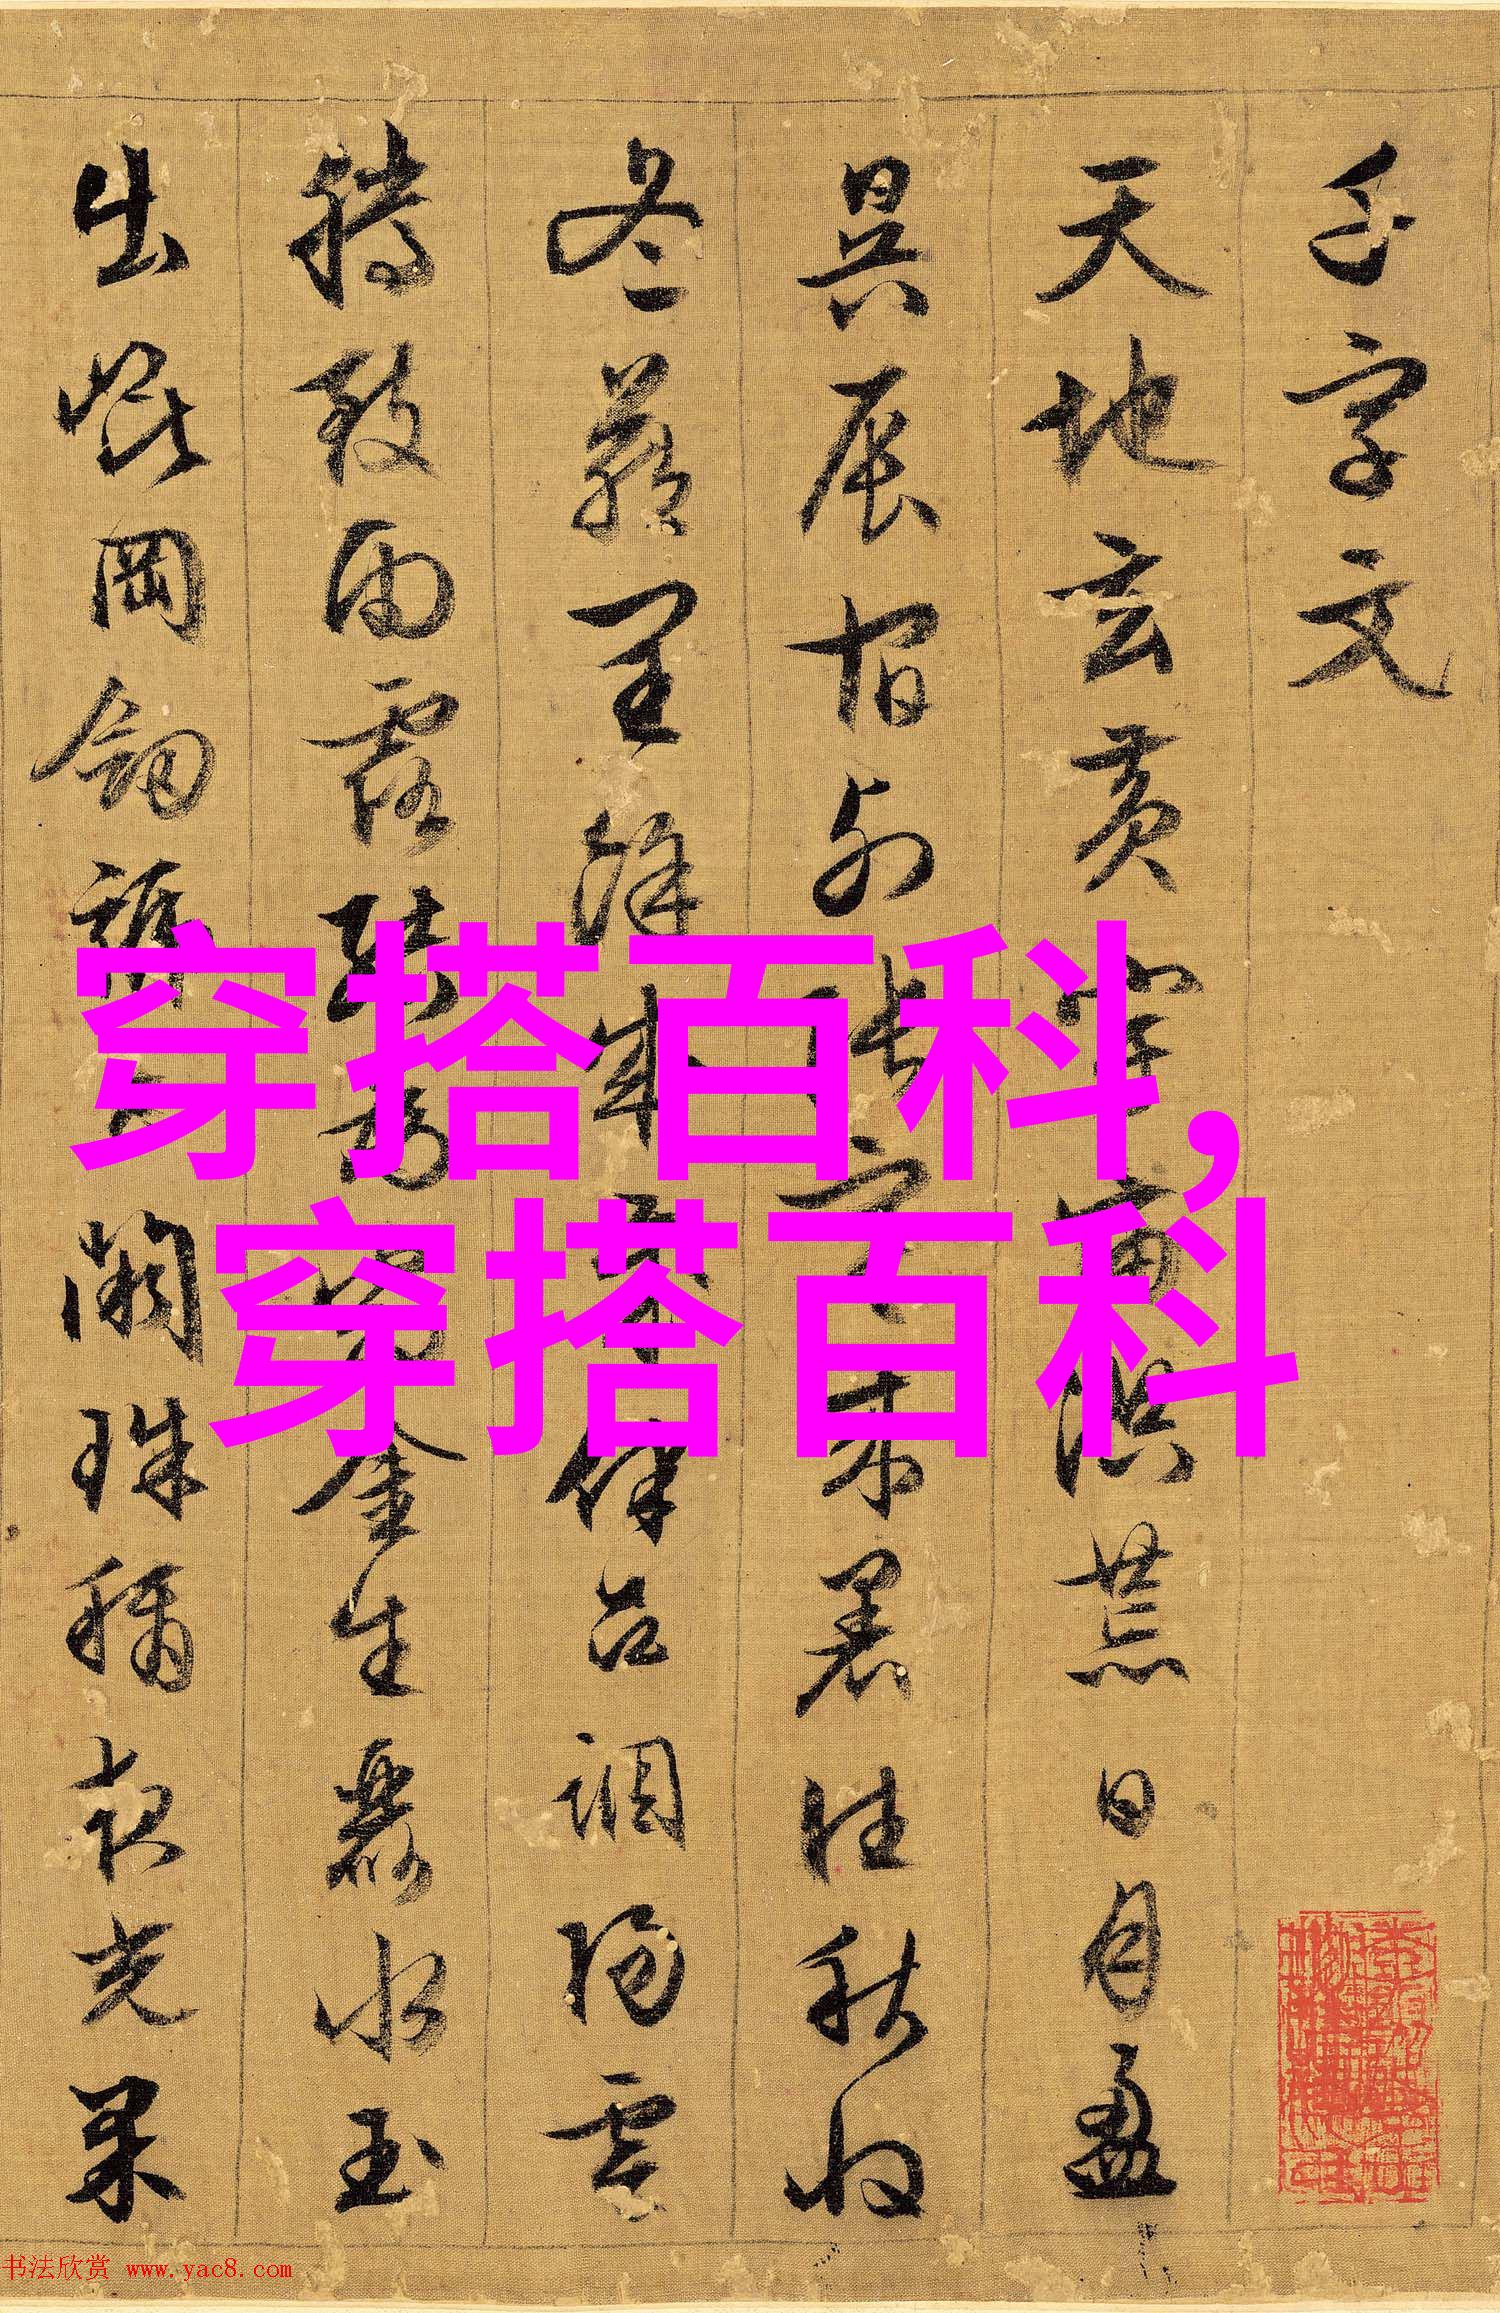 千字文
天地玄黄宇宙洪荒日月盈
昃辰宿列张寒来暑往秋收
冬藏闰余成岁律吕调阳云
腾致雨露结为霜金生丽水玉
出崑冈剑号巨阙珠称夜光果
穿搭百科,
穿搭百科
书法欣赏 www.yac8.com